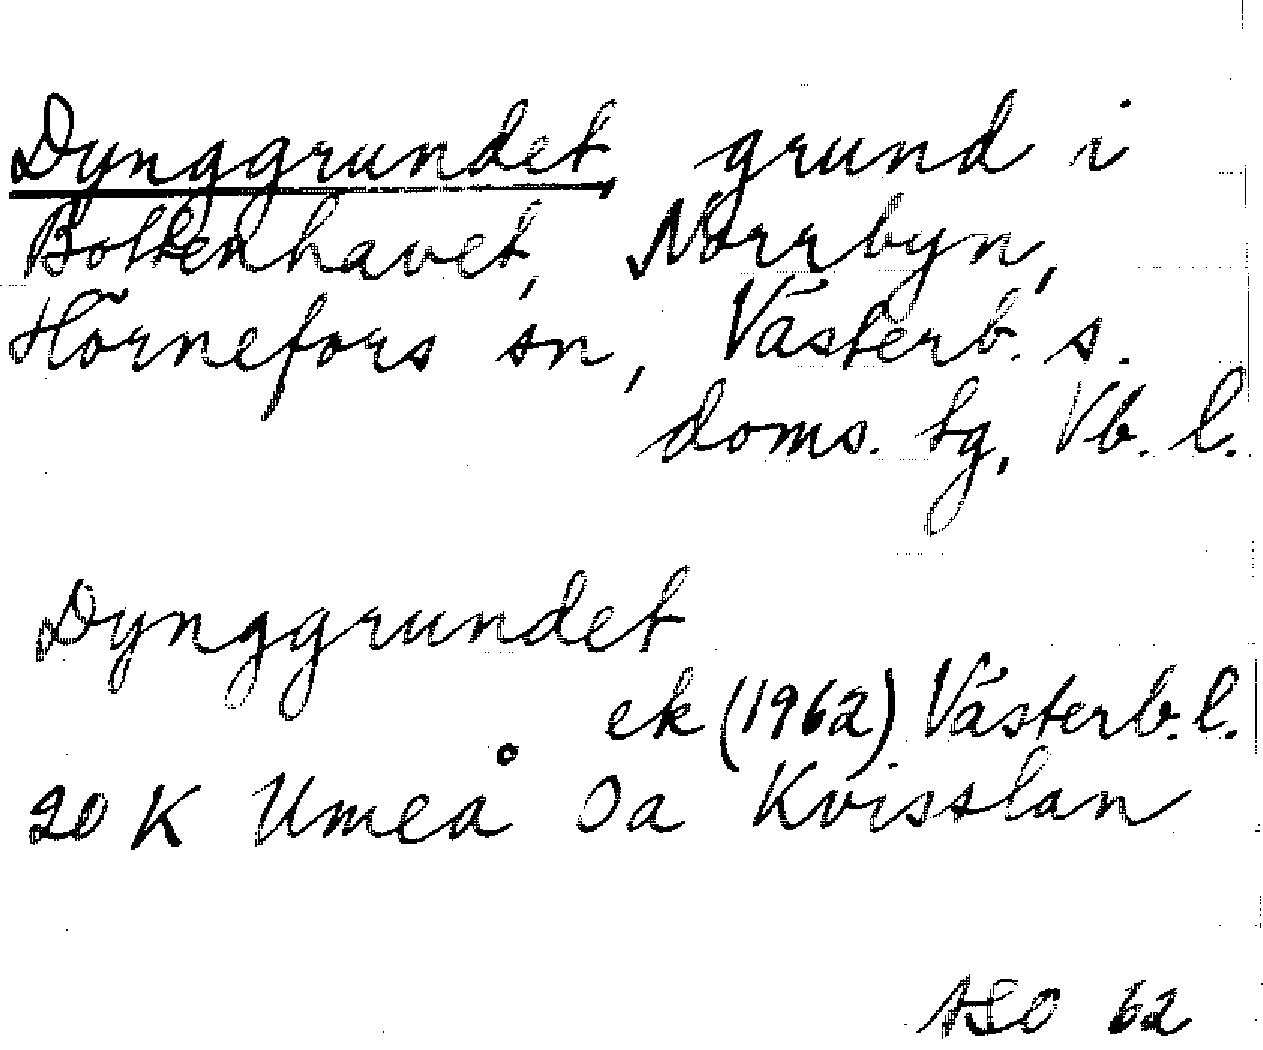 Dynggrundet, grund i
Bottenhavet, Norrbyn,
Hörnefors sn, Västerb. s.
doms. tg, Vb. l.
Dynggrundet
ek (1962) Västerb. l.
20 K Umeå 0a Kvisslan
ASO 62